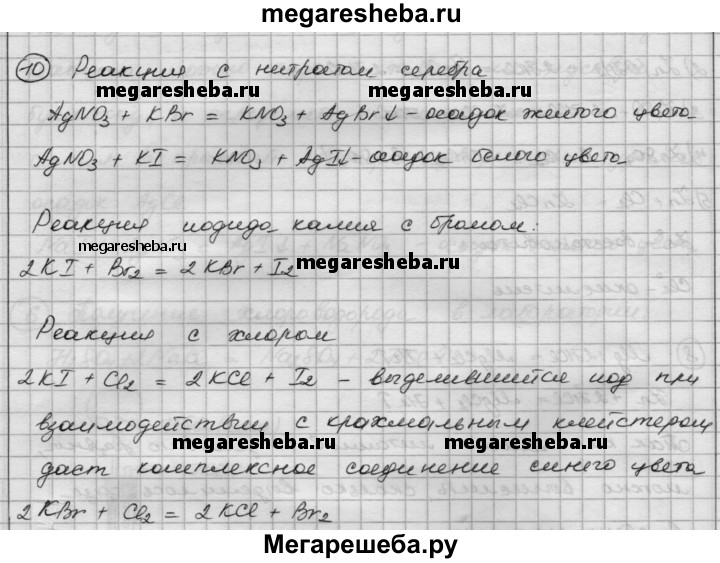 megaresheba.ru
10 Реакция с нитратом серебра
megaresheba.ru megaresheba.ru
AgNO3 + KBr = KNO3 + AgBr↓ - осадок желтого цвета
AgNO3 + KI = KNO3 + AgI↓ - осадок белого цвета
Реакция иодида калия с бромом:
megaresheba.ru
2KI + Br2 = 2KBr + I2 megaresheba.ru
Реакция с хлором
2KI + Cl2 = 2KCl + I2 - выделившийся иод при
взаимодействии с крахмальным клейстером
megaresheba.ru megaresheba.ru
даст комплексное соединение синего цвета
2KBr + Cl2 = 2KCl + Br2
Мегарешеба.ру